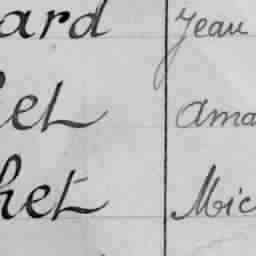 ard Jean
let Ama
het Mic